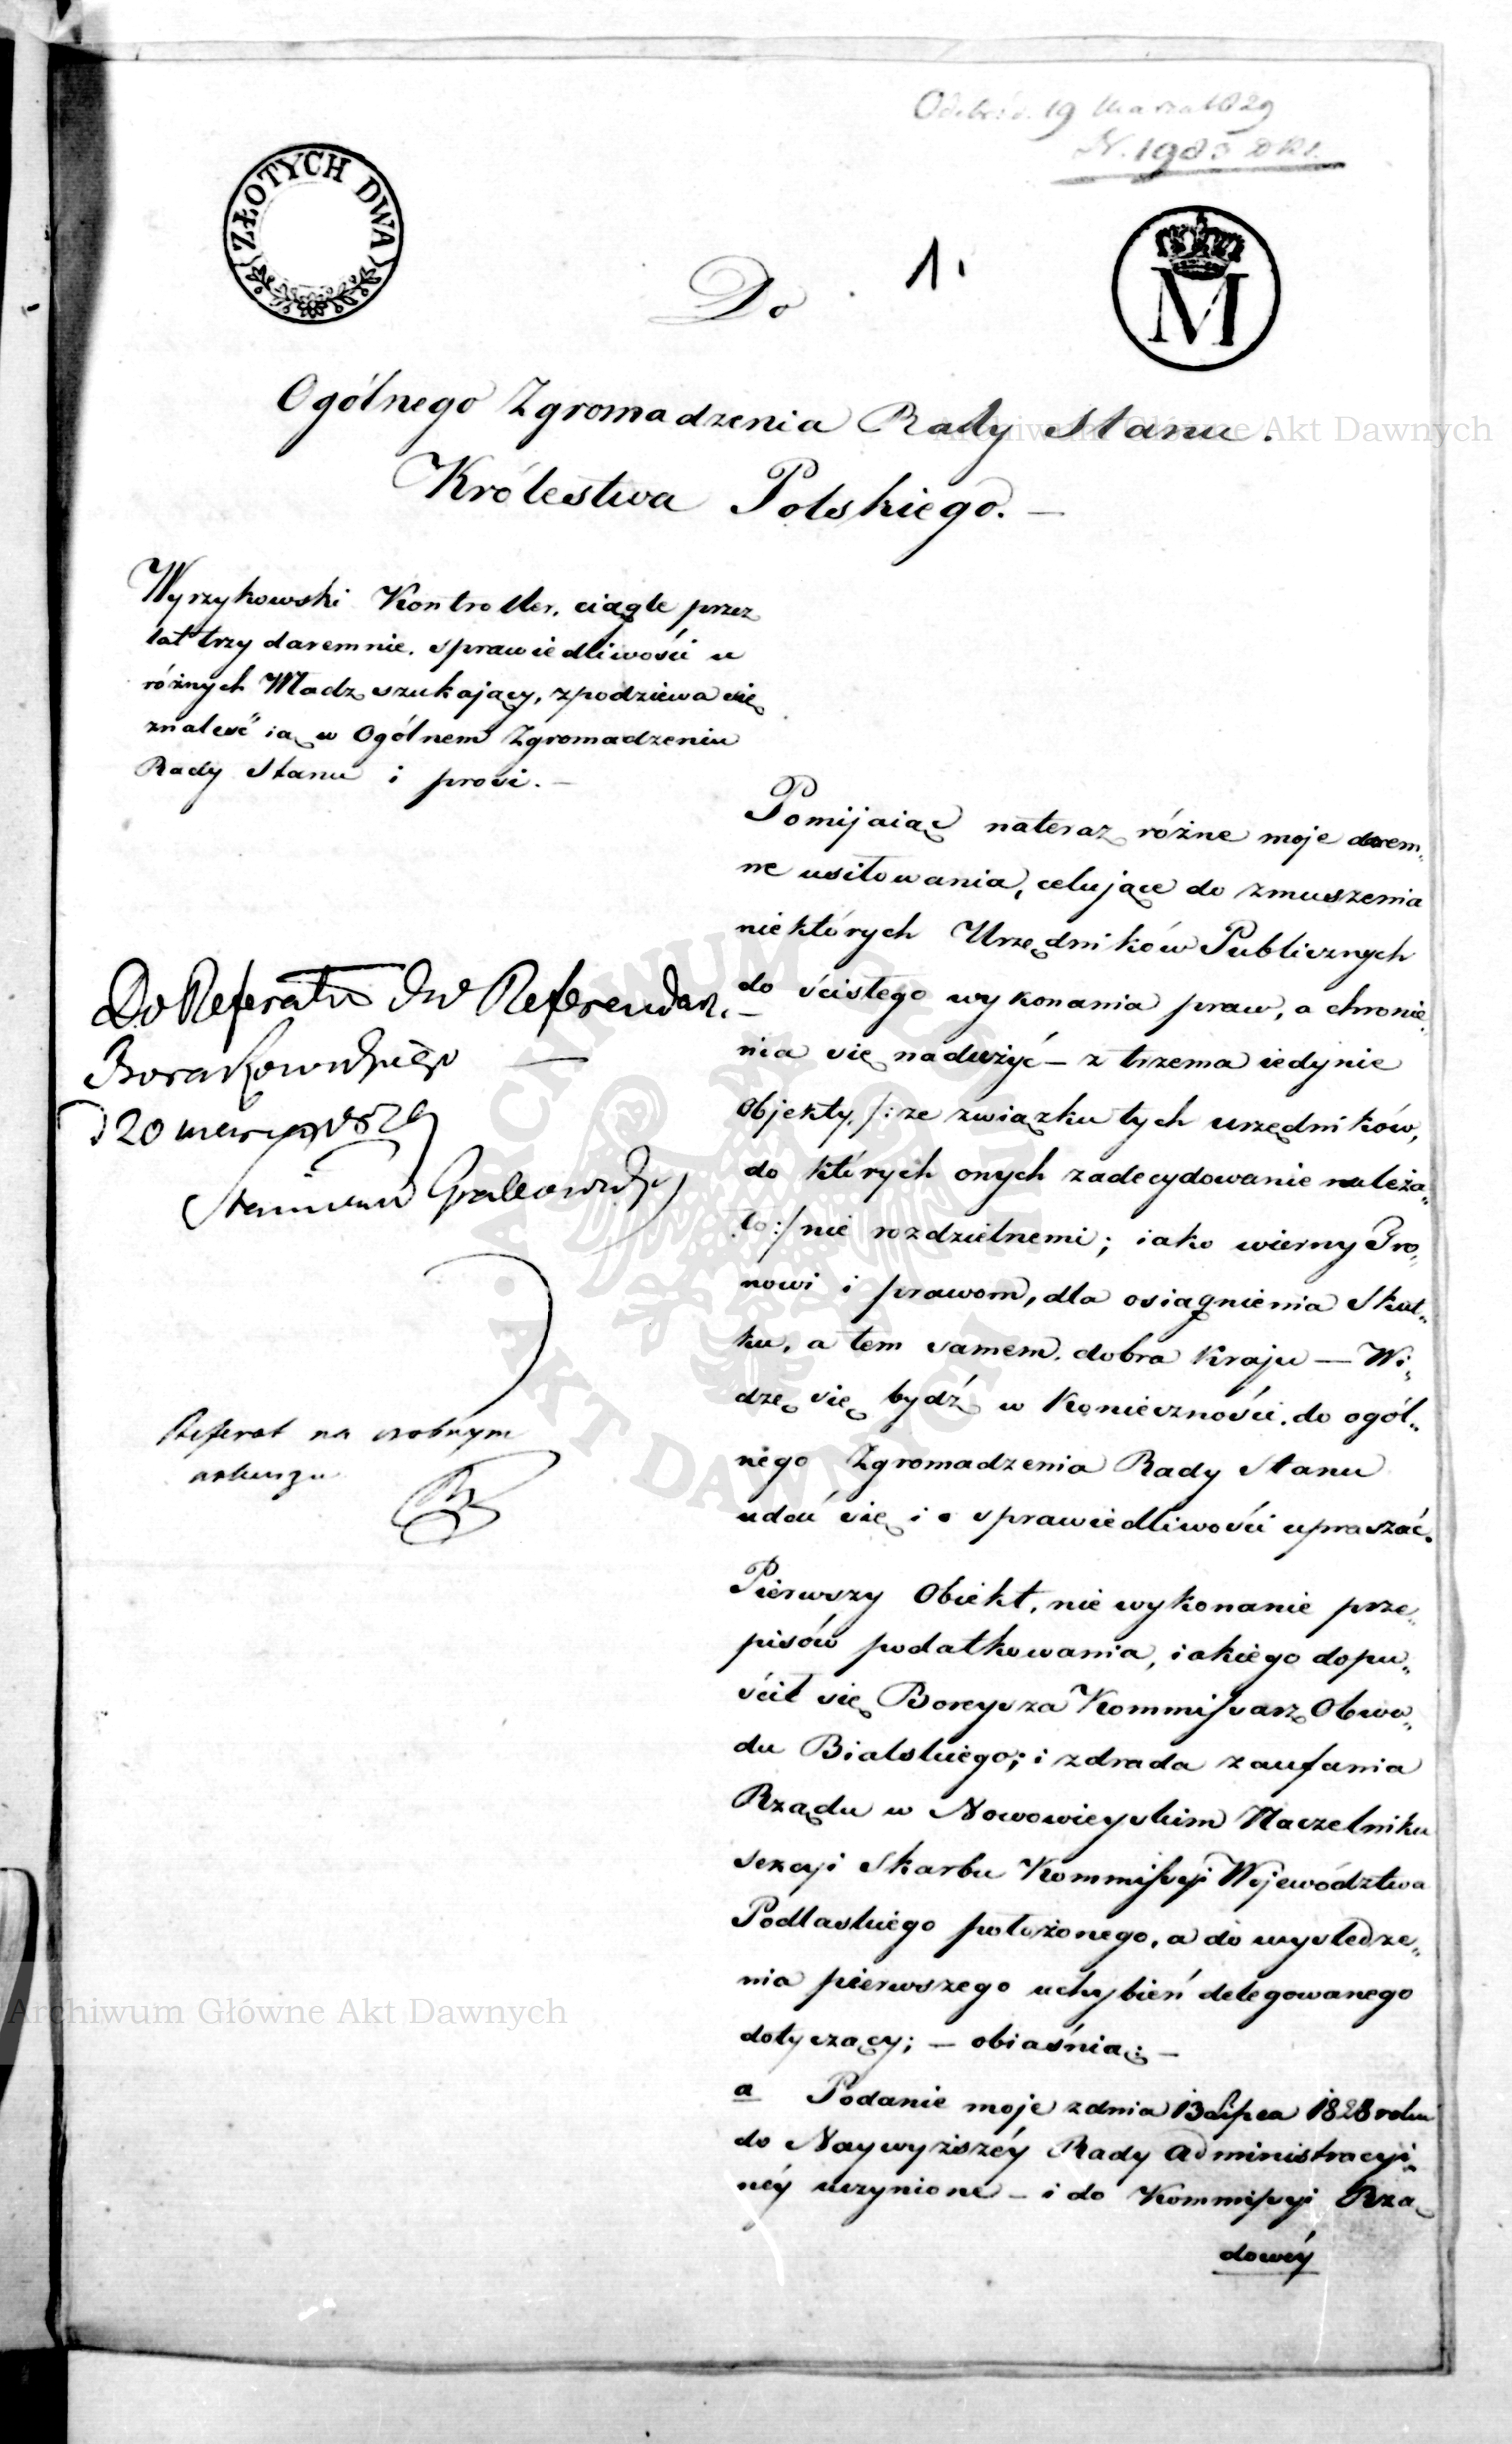 Odebr: d. 19 Marca 1829
N. 1985
ZŁOTYCH DWA
M
1.
Do
Ogólnego Zgromadzenia Rady Stanu.
Królestwa Polskiego. —
Wyrzykowski Kontroller, ciągle przez
lat trzy daremnie, sprawiedliwości u
różnych Władz szukający, zpodziewa się
znaleść ią w Ogólnem Zgromadzeniu
Rady Stanu i prosi. —
Do Referatu JW Referendar.
Borakowskiego —
d 20 marca 1829
Stanisław Grabowski
Referat na osobnym
arkuszu
Pomijaiąc nateraz różne moje darem„
ne usiłowania, celujące do zmuszenia
niektórych Urzędników Publicznych
do ścisłego wykonania praw, a chronie„
nia się nadużyć — z trzema iedynie
Objekty, /: ze związku tych urzędników,
do których onych zadecydowanie należa„
ło :/ nie rozdzielnemi; iako wierny Tro„
nowi i prawom, dla osiągnienia Skut„
ku, a tem samem, dobra Kraju — Wi„
dzę się bydź w Konieczności, do ogól„
nego Zgromadzenia Rady Stanu
udać się i o sprawiedliwości upraszać.
Pierwszy Obiekt, nie wykonanie prze„
pisów podatkowania, iakiego dopu„
ścił się Boreysza Kommissarz Obwo„
du Bialskiego; i zdrada zaufania
Rządu w Nowowieyskim Naczelniku
sekcyi Skarbu Kommissyi Województwa
Podlaskiego położonego, a do wysledze„
nia pierwszego uchybień delegowanego
dotyczący; — obiaśnia: —
a Podanie moje z dnia 13 Lipca 1828 roku
do Naywyższéy Rady Administracyi„
néy uczynione — i do Kommissyi Rzą„
dowéy
Archiwum Główne Akt Dawnych
Archiwum Główne Akt Dawnych
ARCHIWUM GŁÓWNE AKT DAWNYCH